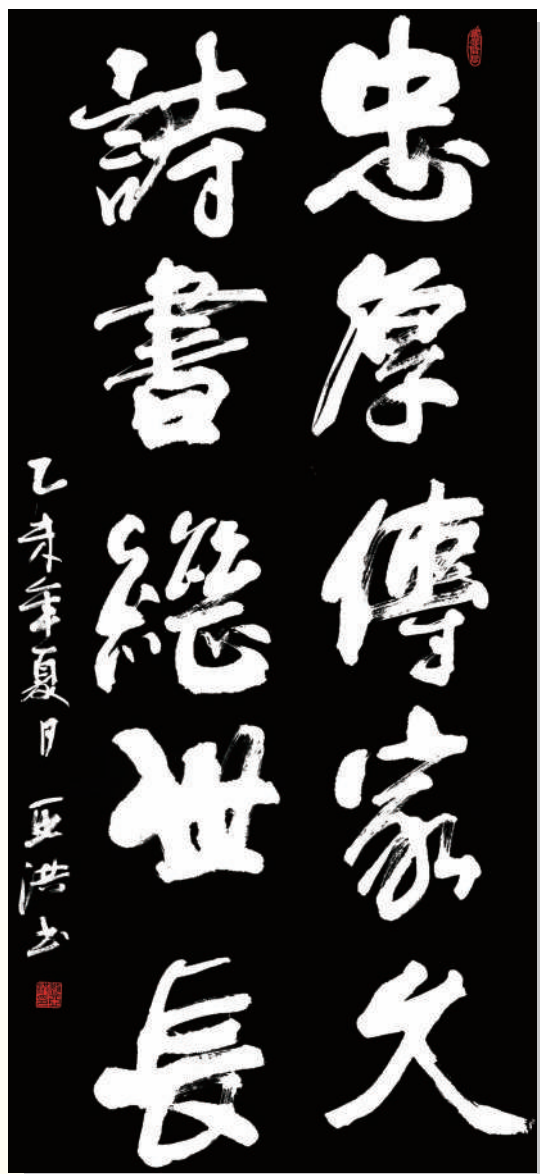 忠厚傳家久
詩書繼世長
乙未年夏日 亚洪书